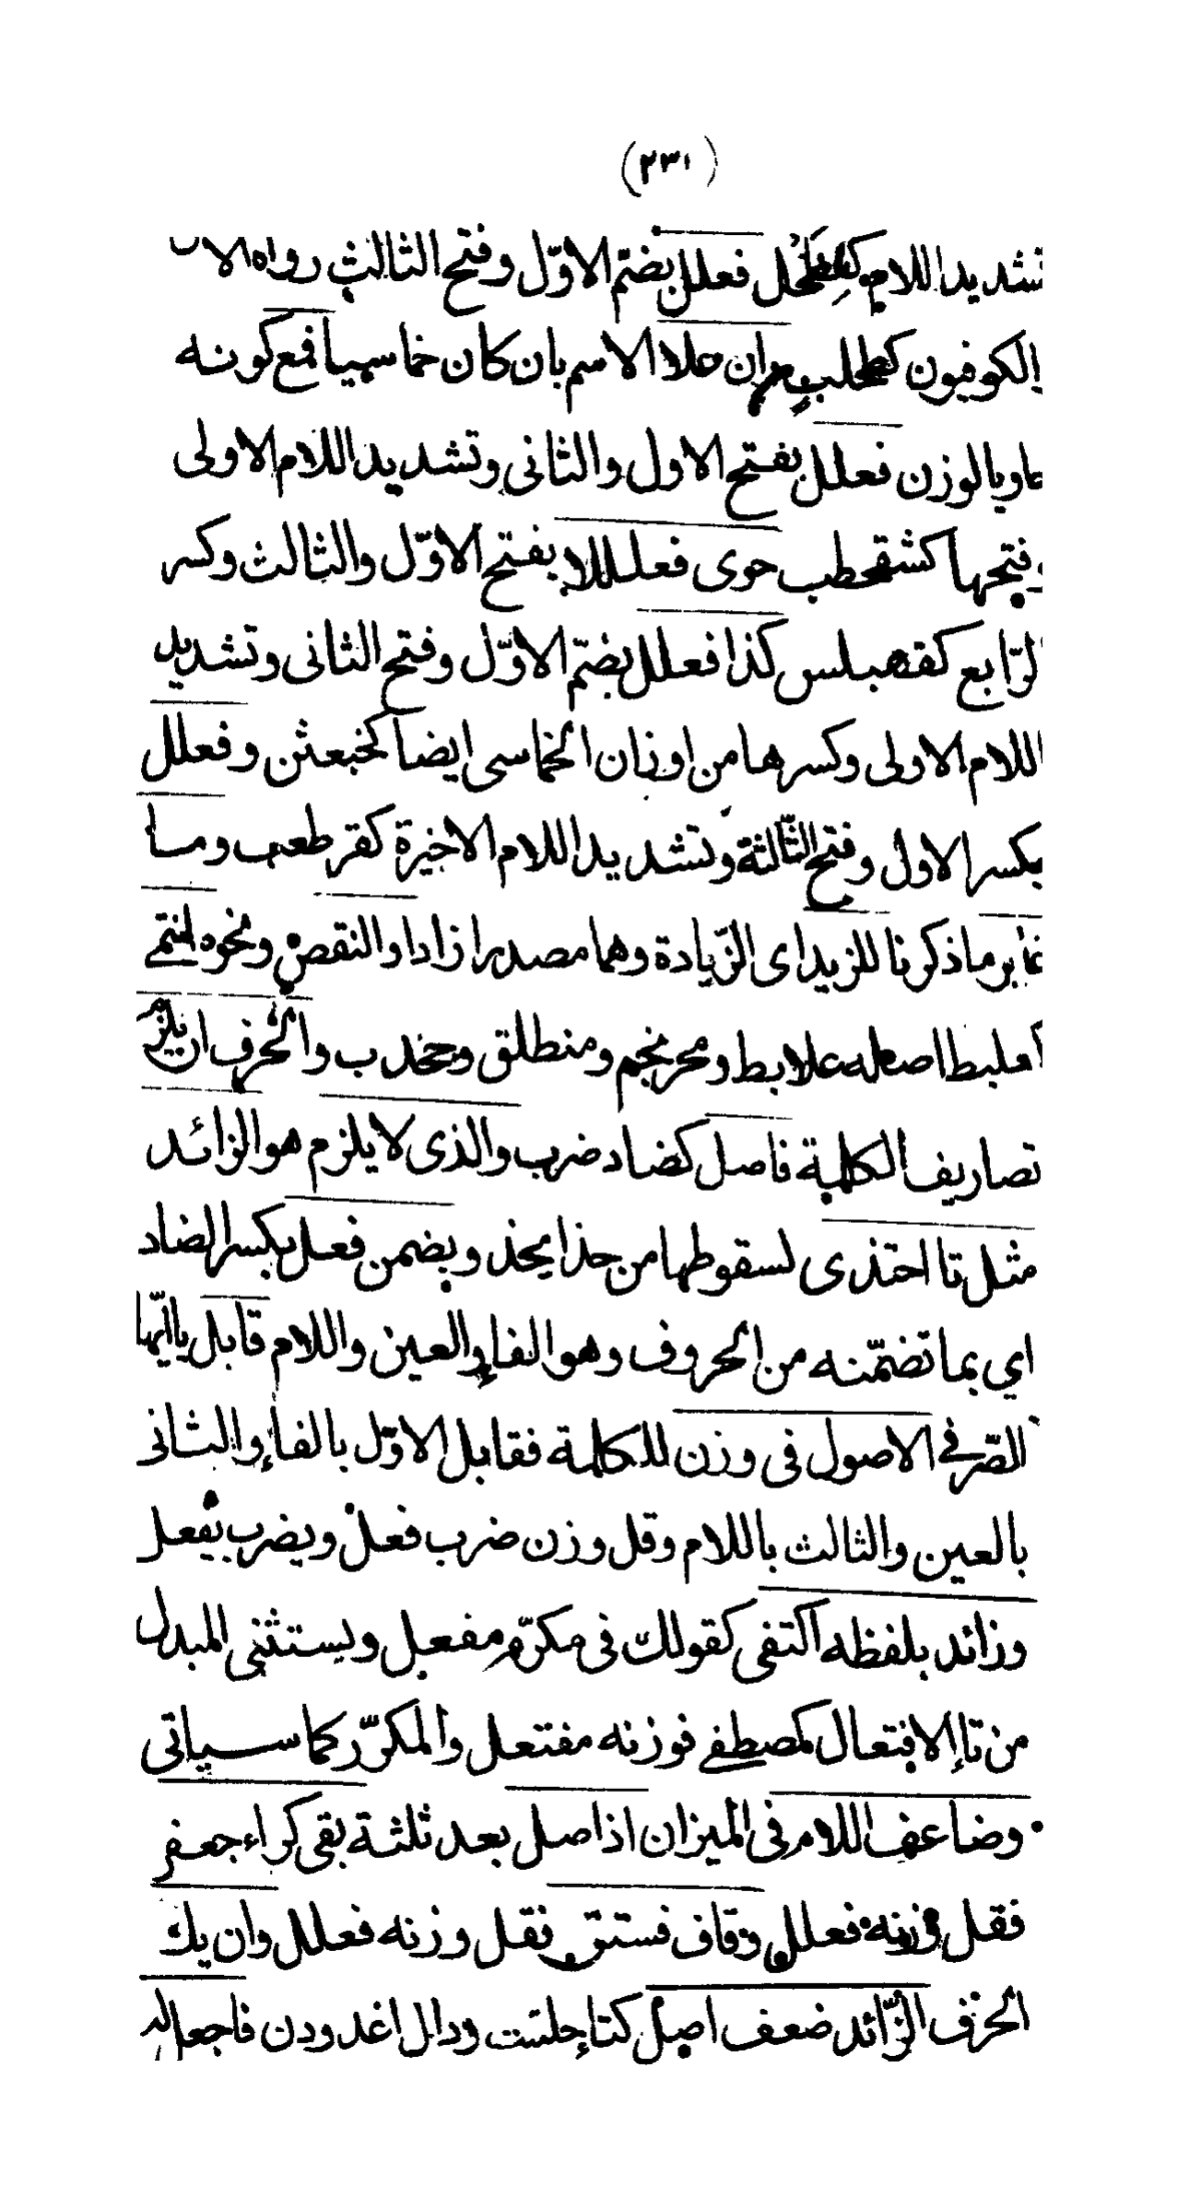 (٢٣١)
تشديد اللام كفطحل فعلل بضمّ الاوّل وفتح الثالث رواه الا
الكوفيون كطحلب وان علا الاسم بان كان خماسيا فمع كونه
حاويا لوزن فعلل بفتح الاول والثانى وتشديد اللام الاولى
وفتحها كشقحطب حوى فعلللا بفتح الاوّل والثالث وكسر
الرّابع كقهبلس كذا فعلل بضمّ الاوّل وفتح الثانى وتشديد
اللام الاولى وكسرها من اوزان الخماسى ايضا كخبعثن وفعلل
بكسر الاول وفتح الثّالثة وتشديد اللام الاخيرة كقرطعب وما
غاير ما ذكرنا للزيد اى الزّيادة وهما مصدرا زاد او النقص ونحوه انتمى
كعلبط اصله علابط ومحرنجم ومنطلق وجخدب والحرف ان يلزم
تصاريف الكلمة فاصل كضاد ضرب والذى لا يلزم هو الزائد
مثل تا احتذى لسقوطها من حذا يحذ وبضمن فعل بكسر الضاد
اي بما تضمّنه من الحروف وهو الفاء والعين واللام قابل يا ايّها
الصّرفے الاصول فى وزن للكلمة فقابل الاوّل بالفاء والثانى
بالعين والثالث باللام وقل وزن ضرب فعل ويضرب يفعل
وزائد بلفظه اكتفى كقولك فى مكرّم مفعل ويستثنى المبدل
من تاء الافتعال كمصطفے فوزنه مفتعل والمكرّر كما سياتى
وضاعف اللام فى الميزان اذا اصل بعد ثلثة بقى كراء جعفر
فقل فى وزنه فعلل وقاف فستق فقل وزنه فعلل وان يك
الحرف الزّائد ضعف اصل كتاء حلتيت ودال اغدودن فاجعل له